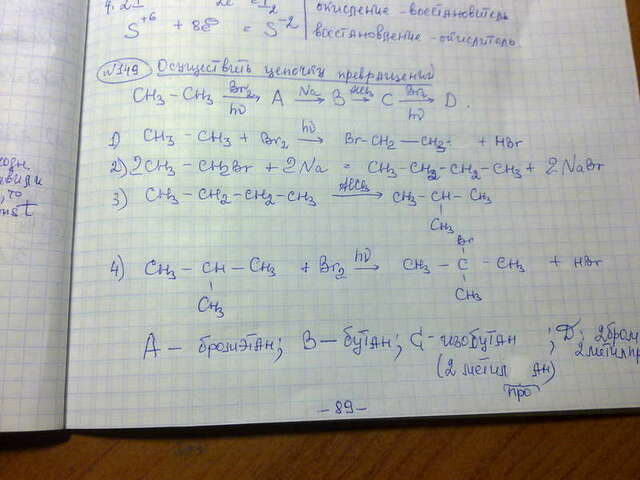 окисление - восстановитель
S⁺⁶ + 8ē = S⁻²
восстановление - окислитель
№149 Осуществить цепочку превращений
CH₃ – CH₃ —Br₂/hν→ A —Na→ B —AlCl₃→ C —Br₂/hν→ D.
1) CH₃ – CH₃ + Br₂ —hν→ Br-CH₂ – CH₃ + HBr
2) 2CH₃ – CH₂Br + 2Na = CH₃-CH₂-CH₂-CH₃ + 2NaBr
3) CH₃ – CH₂ – CH₂ – CH₃ —AlCl₃→ CH₃ – CH – CH₃
CH₃
Br
4) CH₃ – CH – CH₃ + Br₂ —hν→ CH₃ – C – CH₃ + HBr
CH₃ CH₃
A – бромэтан; B – бутан; C – изобутан ; D: 2бром
(2 метил ан) 2метилпр
про
– 89 –